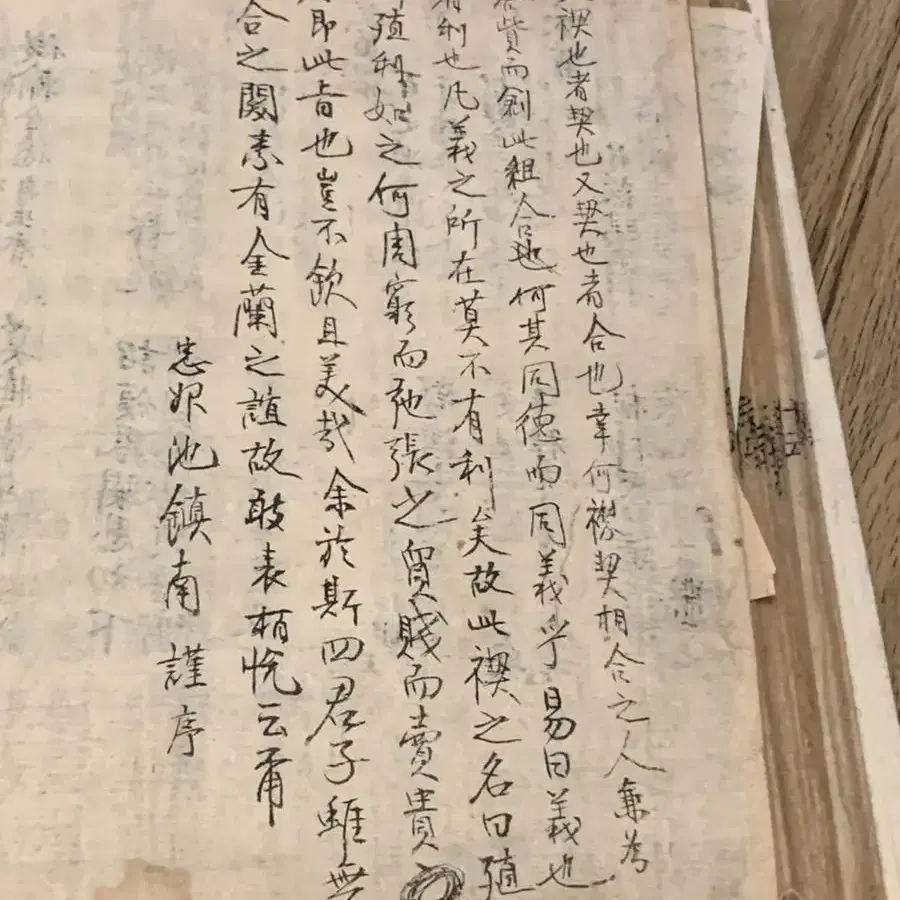 禊也者契也又契也者合也幸何襟契相合之人兼為
資而創此組合也何其同德而同義乎易曰義也
利也凡義之所在莫不有利矣故此禊之名曰殖
殖利如之何周窮而弛張之貿賤而賣貴
即此旨也豈不欽且美哉余於斯四君子雖無
合之閡素有金蘭之誼故敢表栢悅云甭
忠州池鎮南謹序